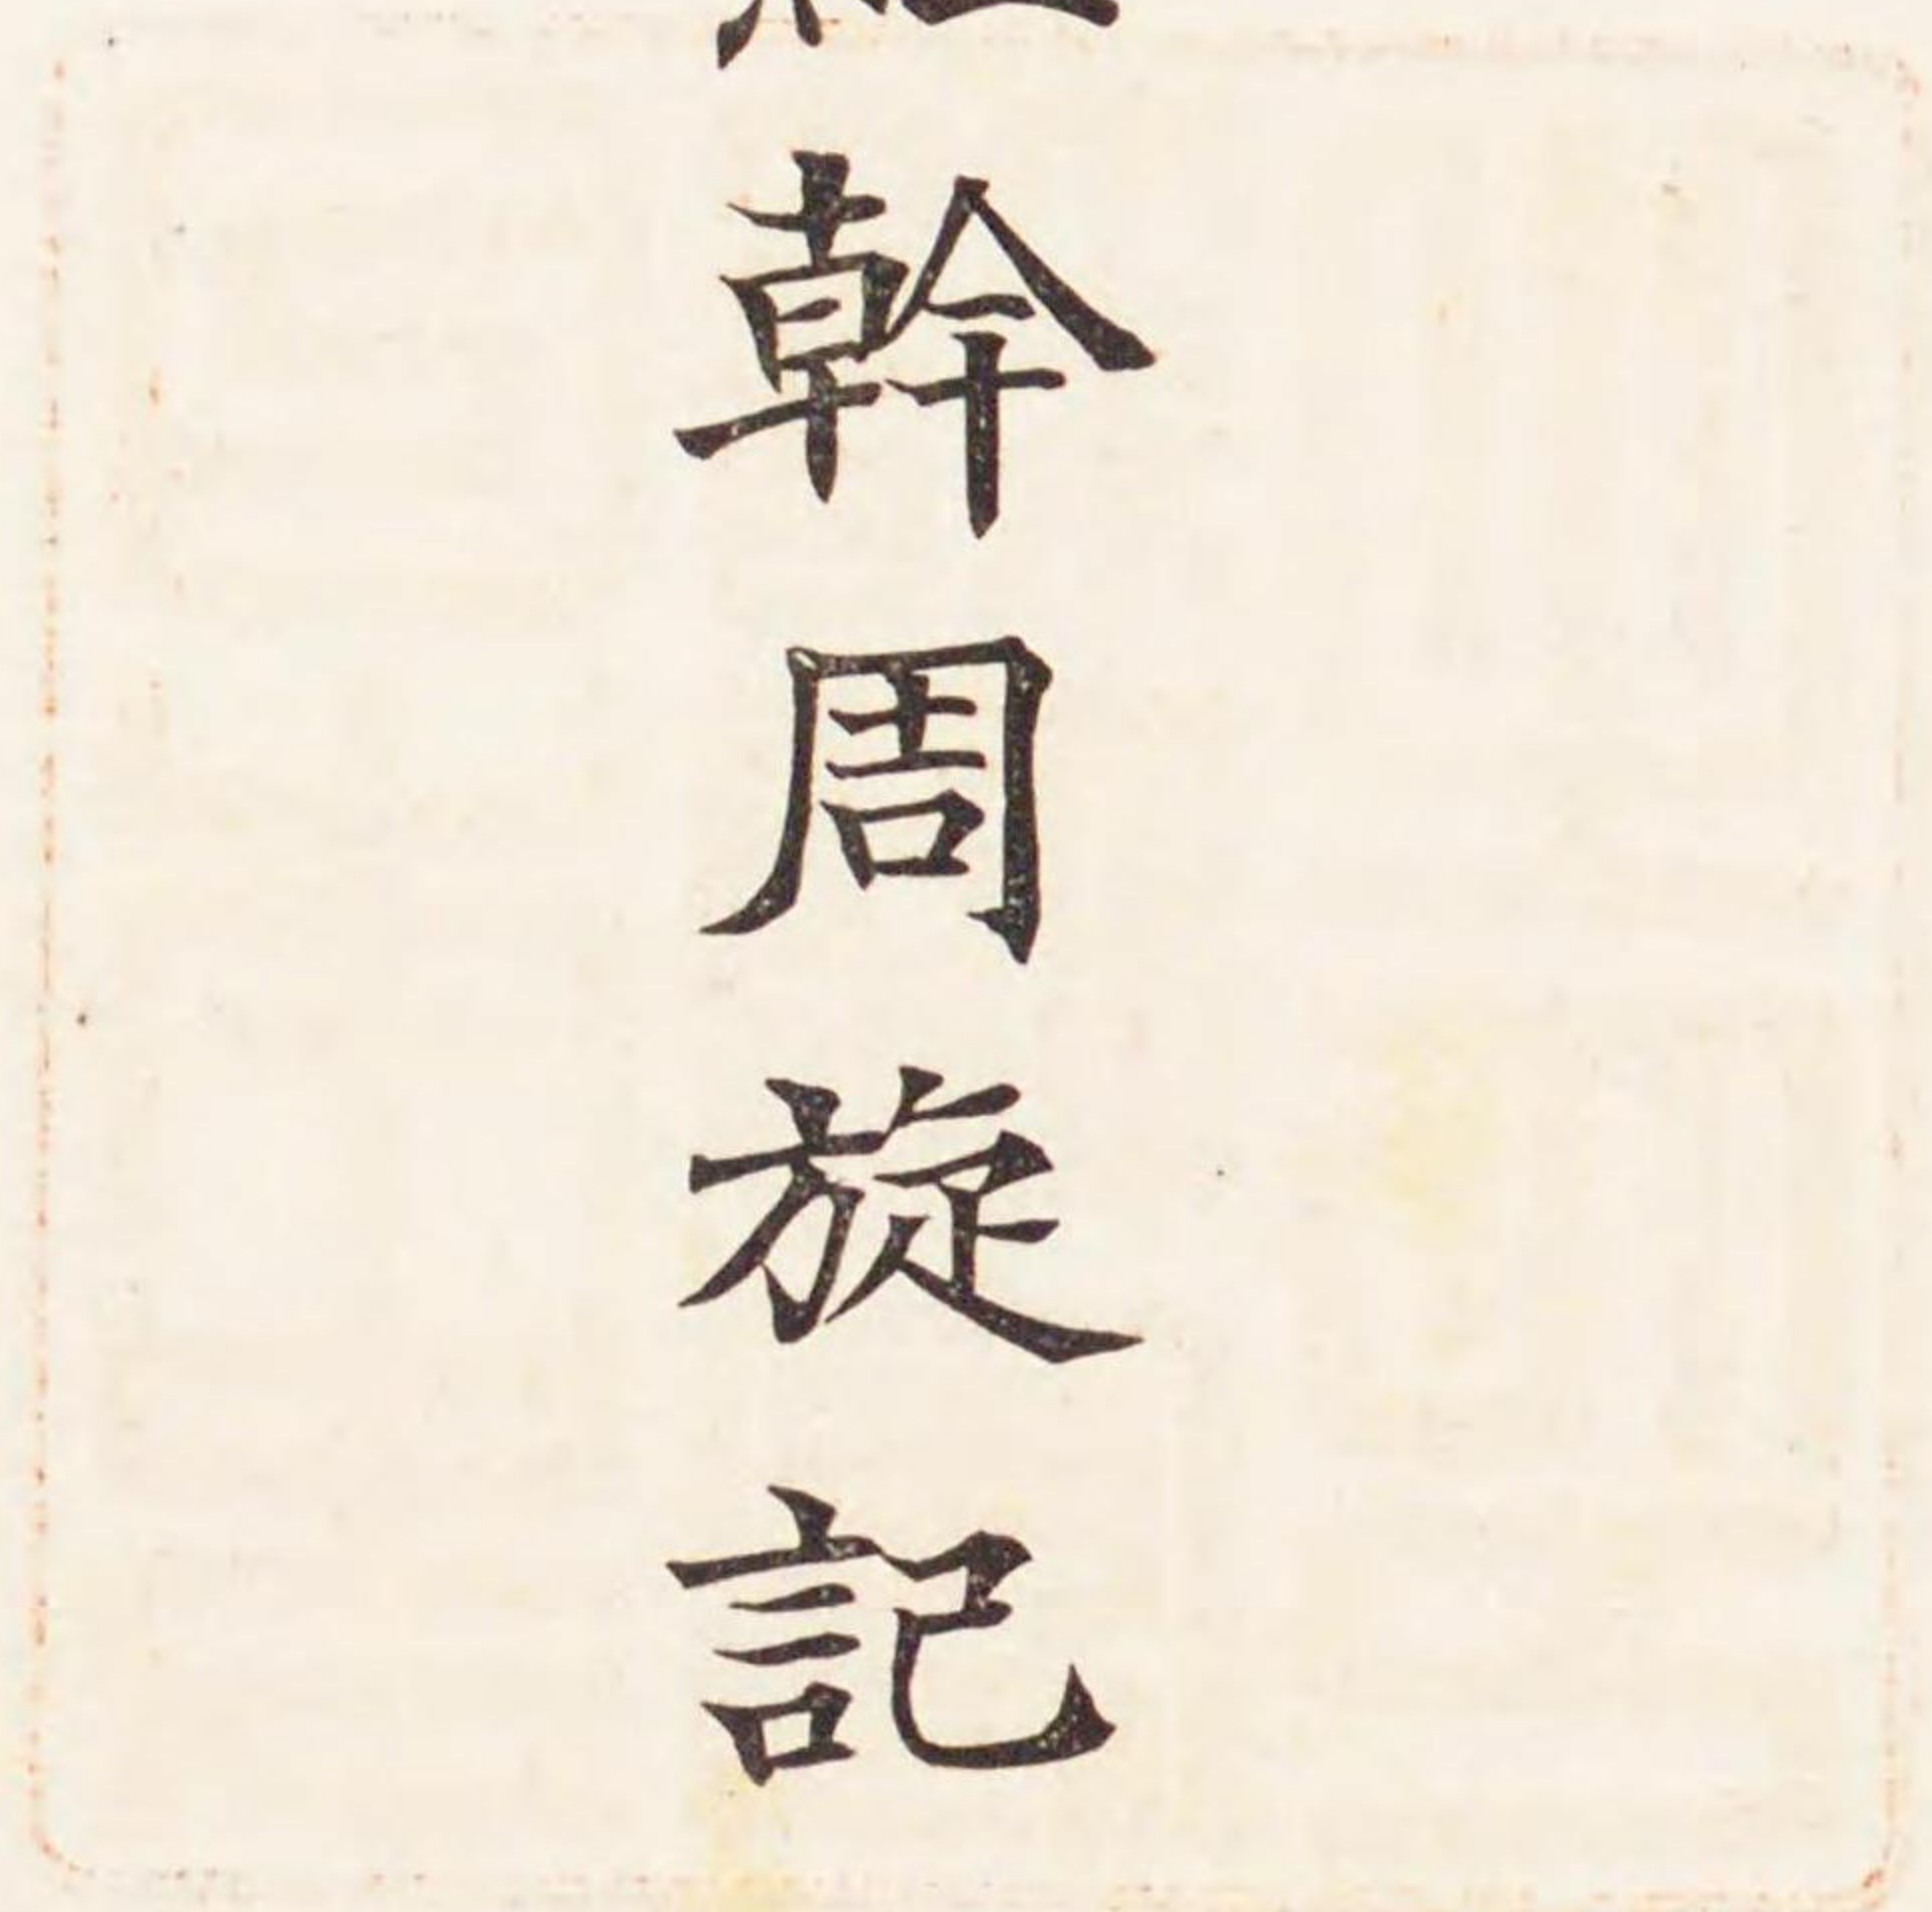 幹周旋記